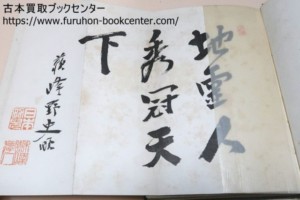 古本買取ブックセンター
地霊人
秀冠天
下
蘇峰野史
https://www.furuhon-bookcenter.com/